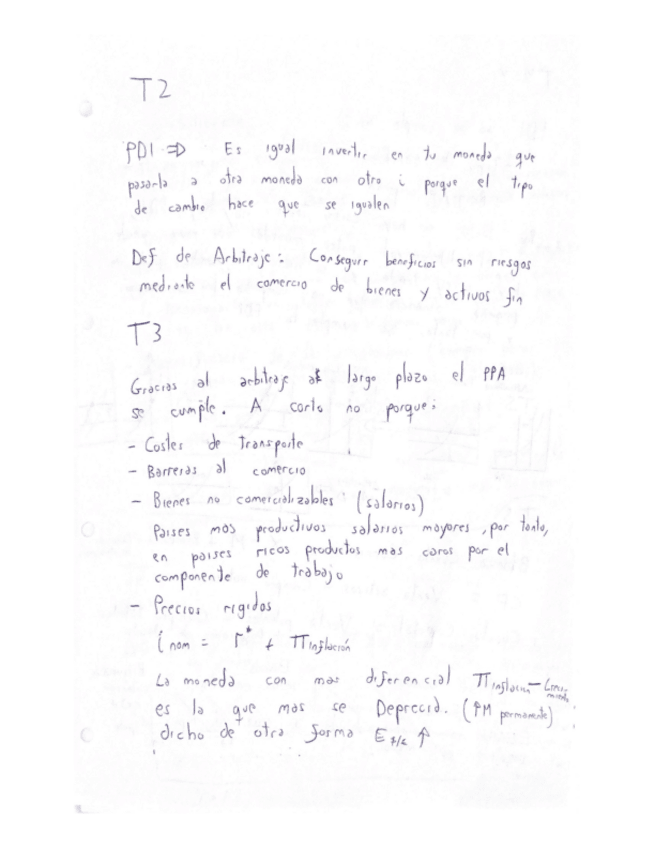 T2
PDI => Es igual invertir en tu moneda que
pasarla a otra moneda con otro i porque el tipo
de cambio hace que se igualen
Def de Arbitraje: Conseguir beneficios sin riesgos
mediante el comercio de bienes y activos fin
T3
Gracias al arbitraje a largo plazo el PPA
se cumple. A corto no porque:
- Costes de transporte
- Barreras al comercio
- Bienes no comercializables (salarios)
Paises mas productivos salarios mayores, por tanto,
en paises ricos productos mas caros por el
componente de trabajo
- Precios rigidos
i nom = r* + π inflación
La moneda con mas diferencial π inflación - Creci-
miento
es la que mas se Deprecia. (↑M permanente)
dicho de otra forma E $/€ ↑